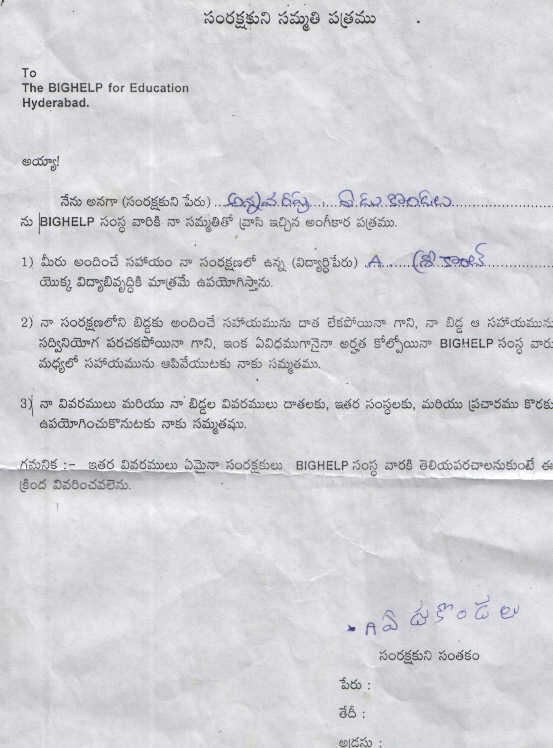 సంరక్షకుని సమ్మతి పత్రము
To
The BIGHELP for Education
Hyderabad.
అయ్యా!
నేను అనగా (సంరక్షకుని పేరు) ...అన్నవరపు...ఏడు కొండలు...
ను BIGHELP సంస్థ వారికి నా సమ్మతితో వ్రాసి ఇచ్చిన అంగీకార పత్రము.
1) మీరు అందించే సహాయం నా సంరక్షణలో ఉన్న (విద్యార్థిపేరు) ..A......శ్రీకాంత్...
యొక్క విద్యాభివృద్ధికి మాత్రమే ఉపయోగిస్తాను.
2) నా సంరక్షణలోని బిడ్డకు అందించే సహాయమును దాత లేకపోయినా గాని, నా బిడ్డ ఆ సహాయమును
సద్వినియోగ పరచకపోయినా గాని, ఇంక ఏవిధముగానైనా అర్హత కోల్పోయినా BIGHELP సంస్థ వారు
మధ్యలో సహాయమును ఆపివేయుటకు నాకు సమ్మతము.
3) నా వివరములు మరియు నా బిడ్డల వివరములు దాతలకు, ఇతర సంస్థలకు, మరియు ప్రచారము కొరకు
ఉపయోగించుకొనుటకు నాకు సమ్మతము.
గమనిక :- ఇతర వివరములు ఏమైనా సంరక్షకులు BIGHELP సంస్థ వారకి తెలియపరచాలనుకుంటే ఈ
క్రింద వివరించవలెను.
A ఏడుకొండలు
సంరక్షకుని సంతకం
పేరు :
తేదీ :
అడ్రసు :